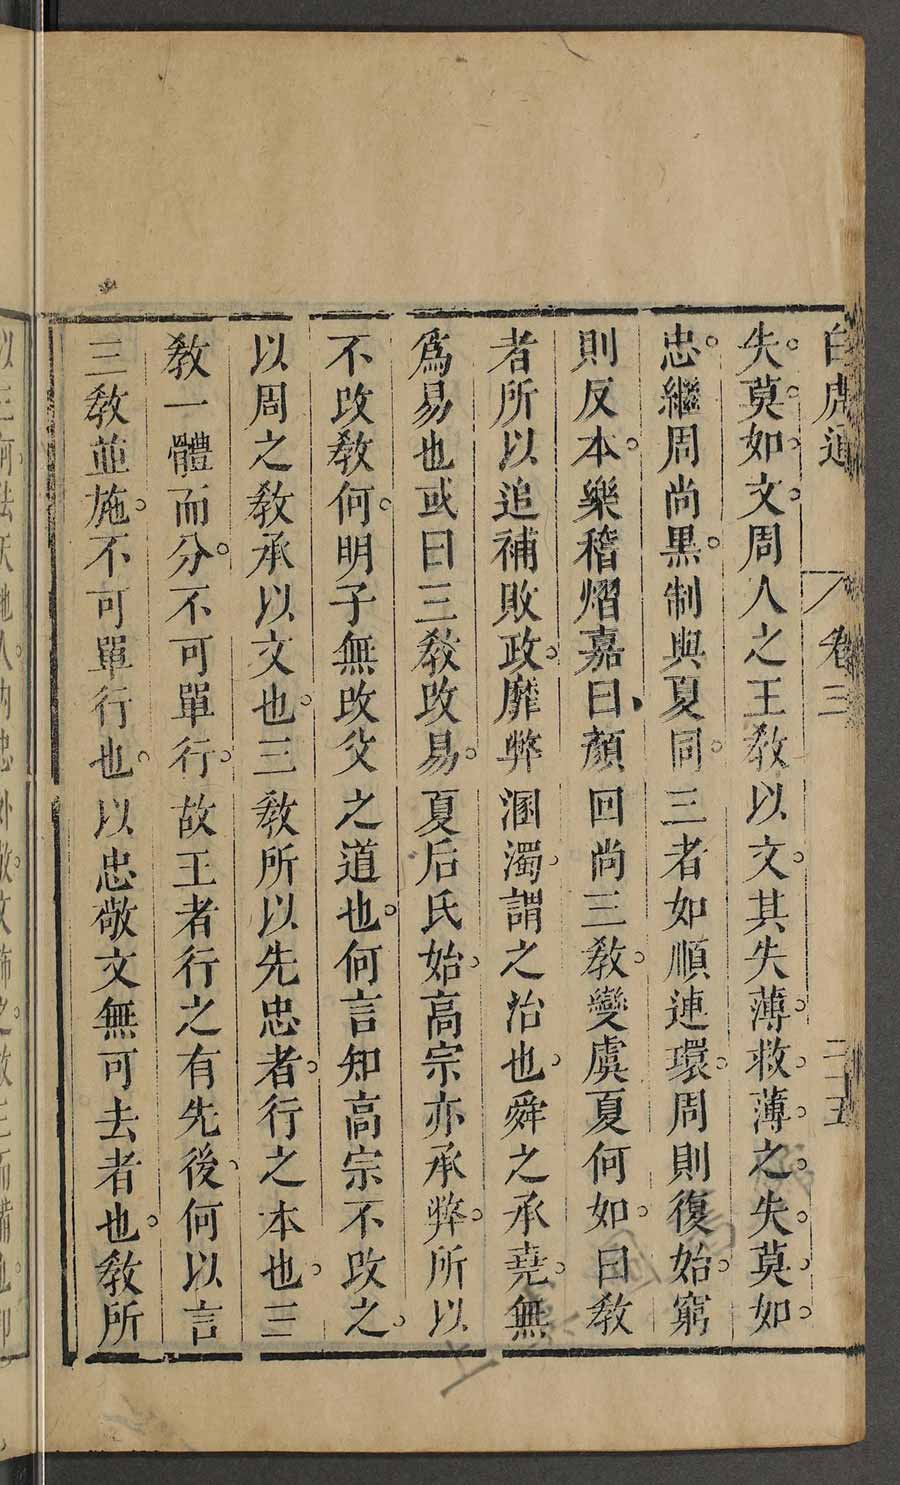 白虎通 卷三 二十五
失莫如文周人之王教以文其失薄救薄之失莫如
忠繼周尚黑制與夏同三者如順連環周則復始窮
則反本樂稽熠嘉曰顏回尚三教變虞夏何如曰教
者所以追補敗政靡弊溷濁謂之治也舜之承堯無
爲易也或曰三教改易夏后氏始高宗亦承弊所以
不改教何明子無改父之道也何言知高宗不改之
以周之教承以文也三教所以先忠者行之本也三
教一體而分不可單行故王者行之有先後何以言
三教並施不可單行也以忠敬文無可去者也教所